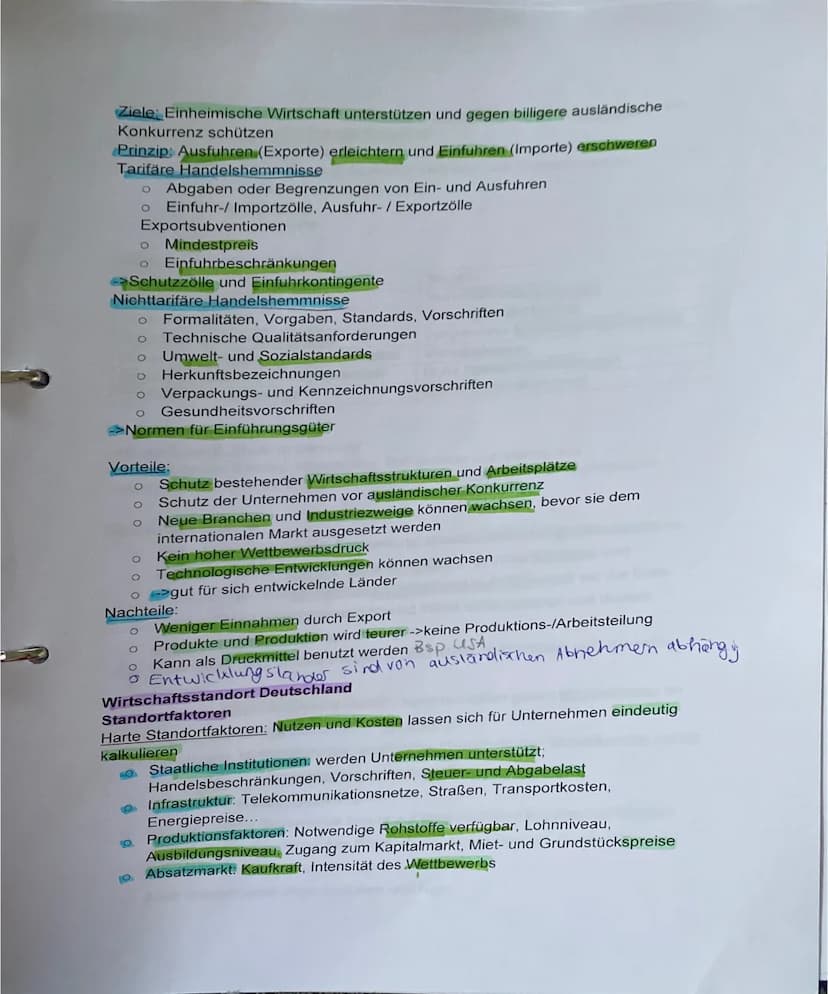 Ziele: Einheimische Wirtschaft unterstützen und gegen billigere ausländische
Konkurrenz schützen
Prinzip: Ausfuhren (Exporte) erleichtern und Einfuhren (Importe) erschweren
Tarifäre Handelshemmnisse
o Abgaben oder Begrenzungen von Ein- und Ausfuhren
o Einfuhr-/ Importzölle, Ausfuhr- / Exportzölle
Exportsubventionen
o Mindestpreis
o Einfuhrbeschränkungen
->Schutzzölle und Einfuhrkontingente
Nichttarifäre Handelshemmnisse
o Formalitäten, Vorgaben, Standards, Vorschriften
o Technische Qualitätsanforderungen
o Umwelt- und Sozialstandards
o Herkunftsbezeichnungen
o Verpackungs- und Kennzeichnungsvorschriften
o Gesundheitsvorschriften
->Normen für Einführungsgüter
Vorteile:
o Schutz bestehender Wirtschaftsstrukturen und Arbeitsplätze
o Schutz der Unternehmen vor ausländischer Konkurrenz
o Neue Branchen und Industriezweige können wachsen, bevor sie dem
internationalen Markt ausgesetzt werden
o Kein hoher Wettbewerbsdruck
o Technologische Entwicklungen können wachsen
o ->gut für sich entwickelnde Länder
Nachteile:
o Weniger Einnahmen durch Export
o Produkte und Produktion wird teurer ->keine Produktions-/Arbeitsteilung
o Kann als Druckmittel benutzt werden Bsp USA
o Entwicklungsländer sind von ausländischen Abnehmern abhängig
Wirtschaftsstandort Deutschland
Standortfaktoren
Harte Standortfaktoren: Nutzen und Kosten lassen sich für Unternehmen eindeutig
kalkulieren
o Staatliche Institutionen: werden Unternehmen unterstützt;
Handelsbeschränkungen, Vorschriften, Steuer- und Abgabelast
o Infrastruktur: Telekommunikationsnetze, Straßen, Transportkosten,
Energiepreise...
o Produktionsfaktoren: Notwendige Rohstoffe verfügbar, Lohnniveau,
Ausbildungsniveau, Zugang zum Kapitalmarkt, Miet- und Grundstückspreise
o Absatzmarkt: Kaufkraft, Intensität des Wettbewerbs